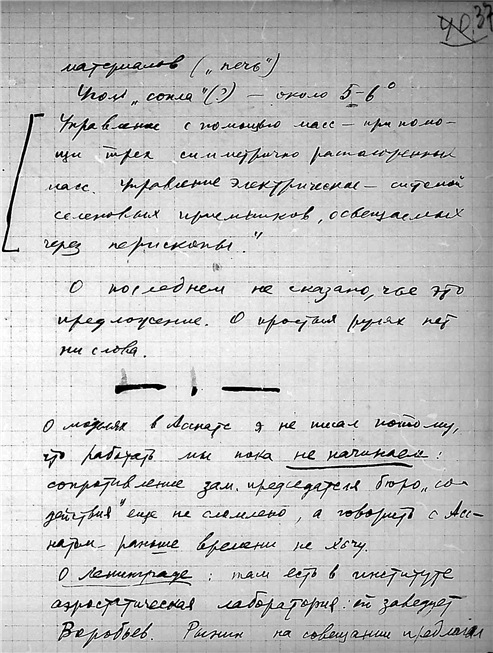 40. 37
материалов („печь")
Угол „сопла" (?) – около 5-6°
Управление с помощью масс – при помо-
щи трех симметрично расположенных
масс. Управление электрическое – системой
селеновых приемников, освещаемых
через перископы."
О последнем не сказано, чье это
предложение. О простых рулях нет
ни слова.
О моделях в Аснате я не писал потому,
что работать мы пока не начинаем:
сопротивление зам. председателя бюро „со-
действия" еще не сломлено, а говорить с Ас-
натом раньше времени не хочу.
О Ленинграде: там есть в институте
аэростатическая лаборатория: ей заведует
Воробьев. Рынин на совещании предлагал